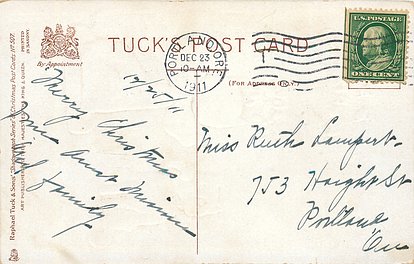 TUCK'S POST CARD
By Appointment
(FOR ADDRESS ONLY.)
PORTLAND, ORE.
DEC 23
10-AM
1911
U.S. POSTAGE
ONE CENT
12/25/11
Merry Christmas
from Aunt Minnie
and family
Miss Ruth Lampert
753 Haight St
Portland
Ore
Raphael Tuck & Sons'
Christmas Post Cards Nº 507.
ART PUBLISHERS TO THEIR MAJESTIES THE KING & QUEEN
PRINTED
IN SAXONY.